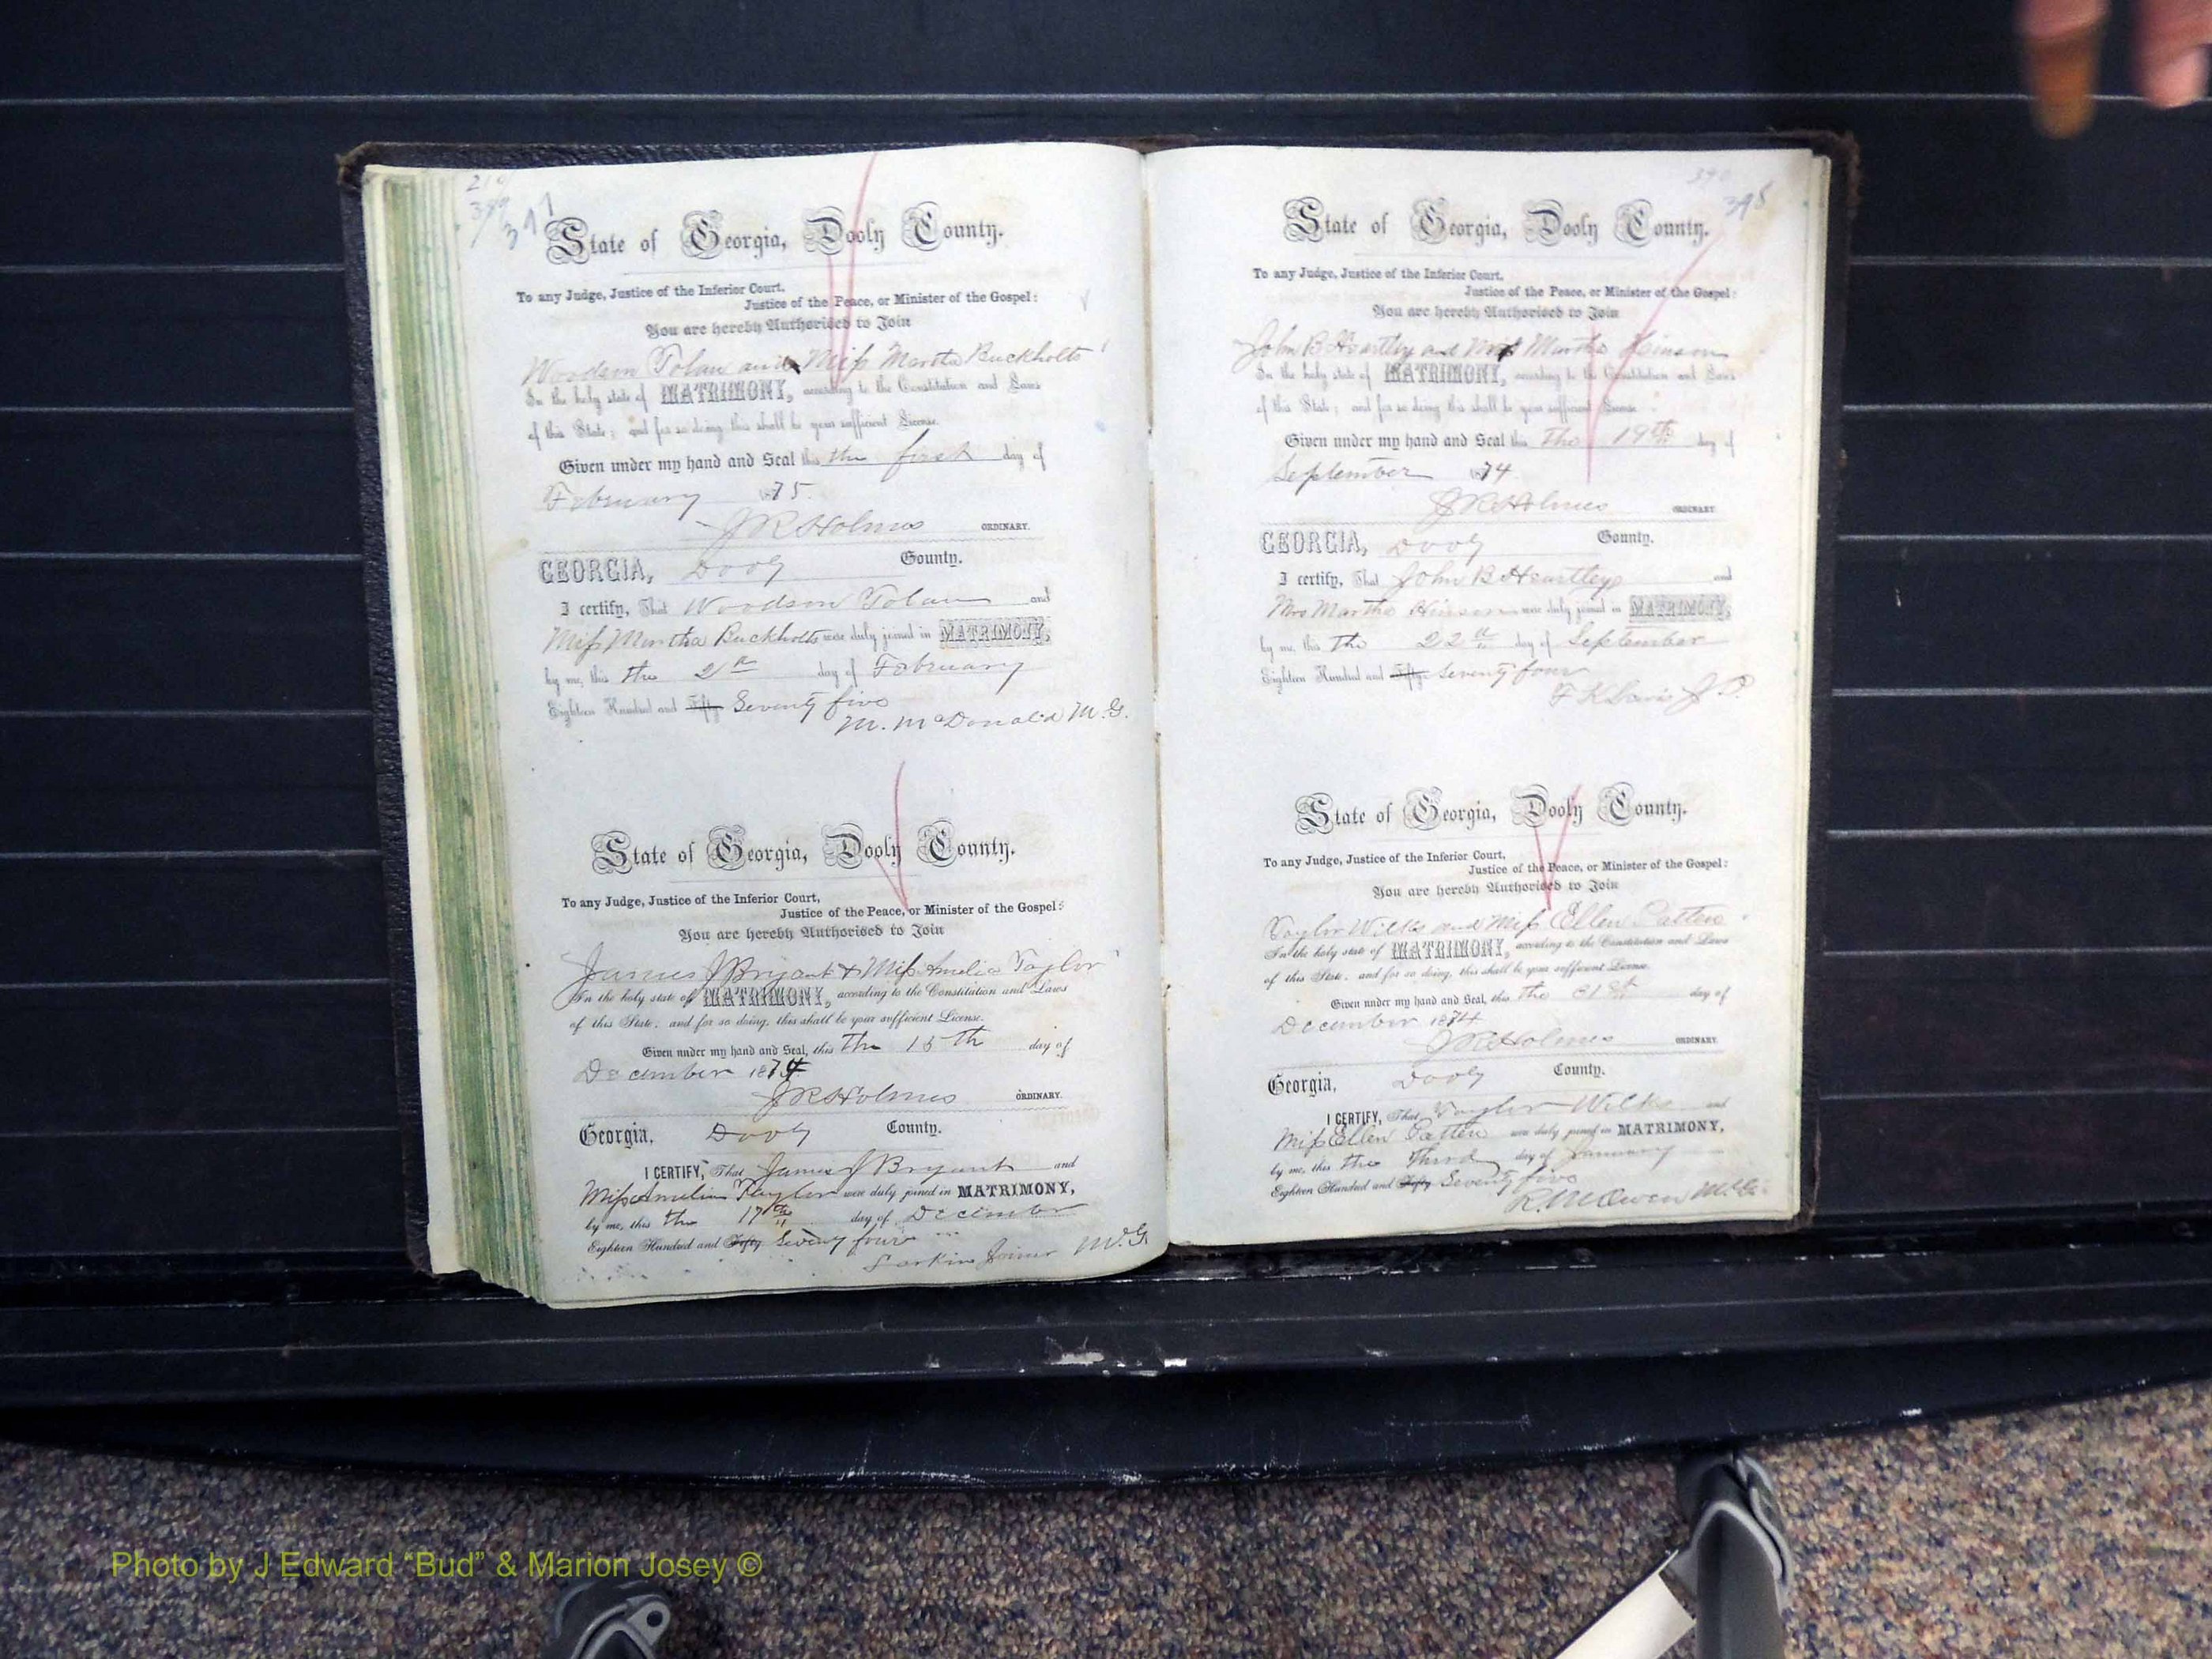 377
State of Georgia, Dooly County.
To any Judge, Justice of the Inferior Court,
Justice of the Peace, or Minister of the Gospel:
You are hereby Authorised to Join
Woodson Tolan and Miss Martha Buckholts
In the holy state of MATRIMONY, according to the Constitution and Laws
of this State; and for so doing this shall be your sufficient License.
Given under my hand and Seal this the first day of
February 1875.
J R Holmes ORDINARY.
GEORGIA, Dooly County.
I certify, That Woodson Tolan and
Miss Martha Buckholts were duly joined in MATRIMONY,
by me, this the 2th day of February
Eighteen Hundred and Fifty Seventy five
M. McDonald M.G.
State of Georgia, Dooly County.
To any Judge, Justice of the Inferior Court,
Justice of the Peace, or Minister of the Gospel:
You are hereby Authorised to Join
James J Bryant & Miss Amelia Taylor
In the holy state of MATRIMONY, according to the Constitution and Laws
of this State; and for so doing, this shall be your sufficient License.
Given under my hand and Seal, this The 15th day of
December 1874
J R Holmes ORDINARY.
Georgia, Dooly County.
I CERTIFY, That James J Bryant and
Miss Amelia Taylor were duly joined in MATRIMONY,
by me, this the 17th day of December
Eighteen Hundred and Fifty Seventy four
Larkin Joiner M.G.
390
State of Georgia, Dooly County.
To any Judge, Justice of the Inferior Court,
Justice of the Peace, or Minister of the Gospel:
You are hereby Authorised to Join
John B Heartley and Mrs Martha Hinson
In the holy state of MATRIMONY, according to the Constitution and Laws
of this State; and for so doing this shall be your sufficient License.
Given under my hand and Seal this The 19th day of
September 1874
J R Holmes ORDINARY
GEORGIA, Dooly County.
I certify, That John B Heartley and
Mrs Martha Hinson were duly joined in MATRIMONY,
by me, this The 22th day of September
Eighteen Hundred and Fifty Seventy four
F K Davis J P
State of Georgia, Dooly County.
To any Judge, Justice of the Inferior Court,
Justice of the Peace, or Minister of the Gospel:
You are hereby Authorised to Join
Taylor Wilks and Miss Ellen Patten
In the holy state of MATRIMONY, according to the Constitution and Laws
of this State; and for so doing, this shall be your sufficient License.
Given under my hand and Seal, this The 31st day of
December 1874
J R Holmes ORDINARY.
Georgia, Dooly County.
I CERTIFY, That Taylor Wilks and
Miss Ellen Patten were duly joined in MATRIMONY,
by me, this the Third day of January
Eighteen Hundred and Fifty Seventy five
R. M Owen M.G.
Photo by J Edward “Bud” & Marion Josey ©